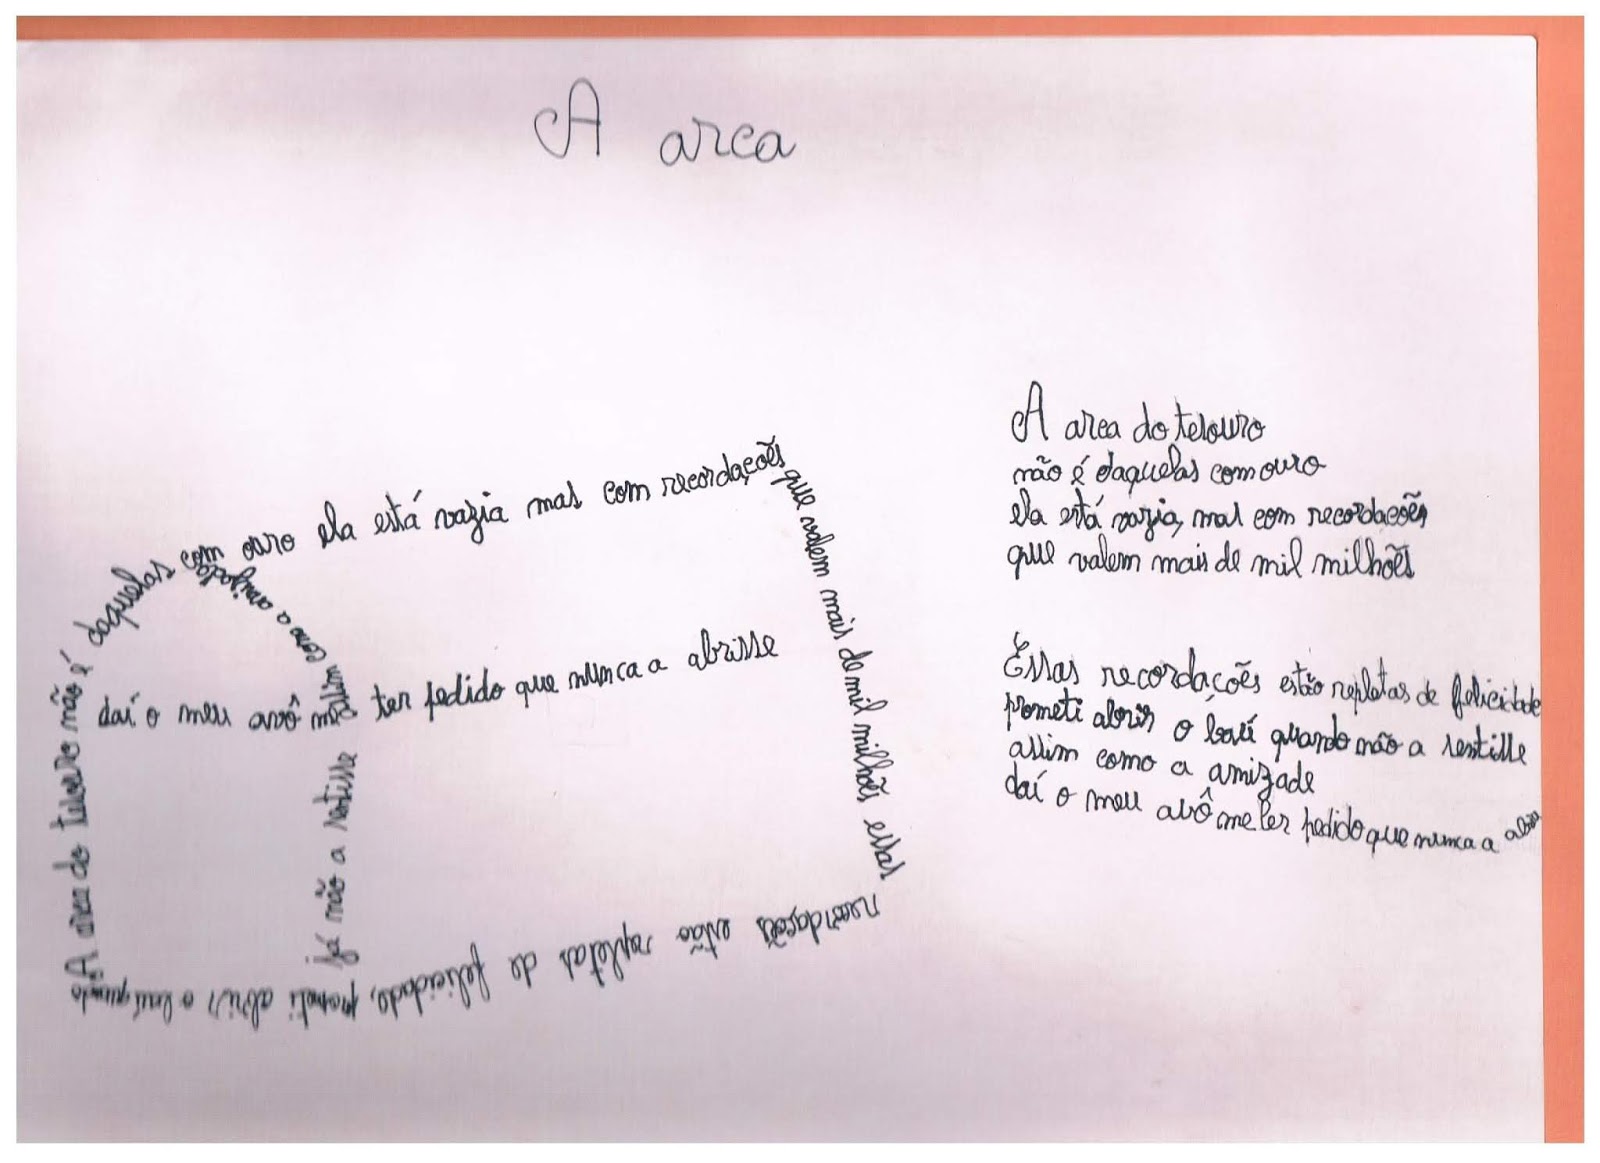 A arca
A arca do tesouro não é daquelas com ouro ela está vazia mas com recordações
que valem mais de mil milhões essas
recordações estão repletas de felicidade, prometi abrir o baú quando
já não a sentisse
assim como a amizade
daí o meu avô me ter pedido que nunca a abrisse
A arca do tesouro
não é daquelas com ouro
ela está vazia, mas com recordacões
que valem mais de mil milhões
Essas recordações estão repletas de felicidade
prometi abrir o baú quando não a sentisse
assim como a amizade
daí o meu avô me ter pedido que nunca a